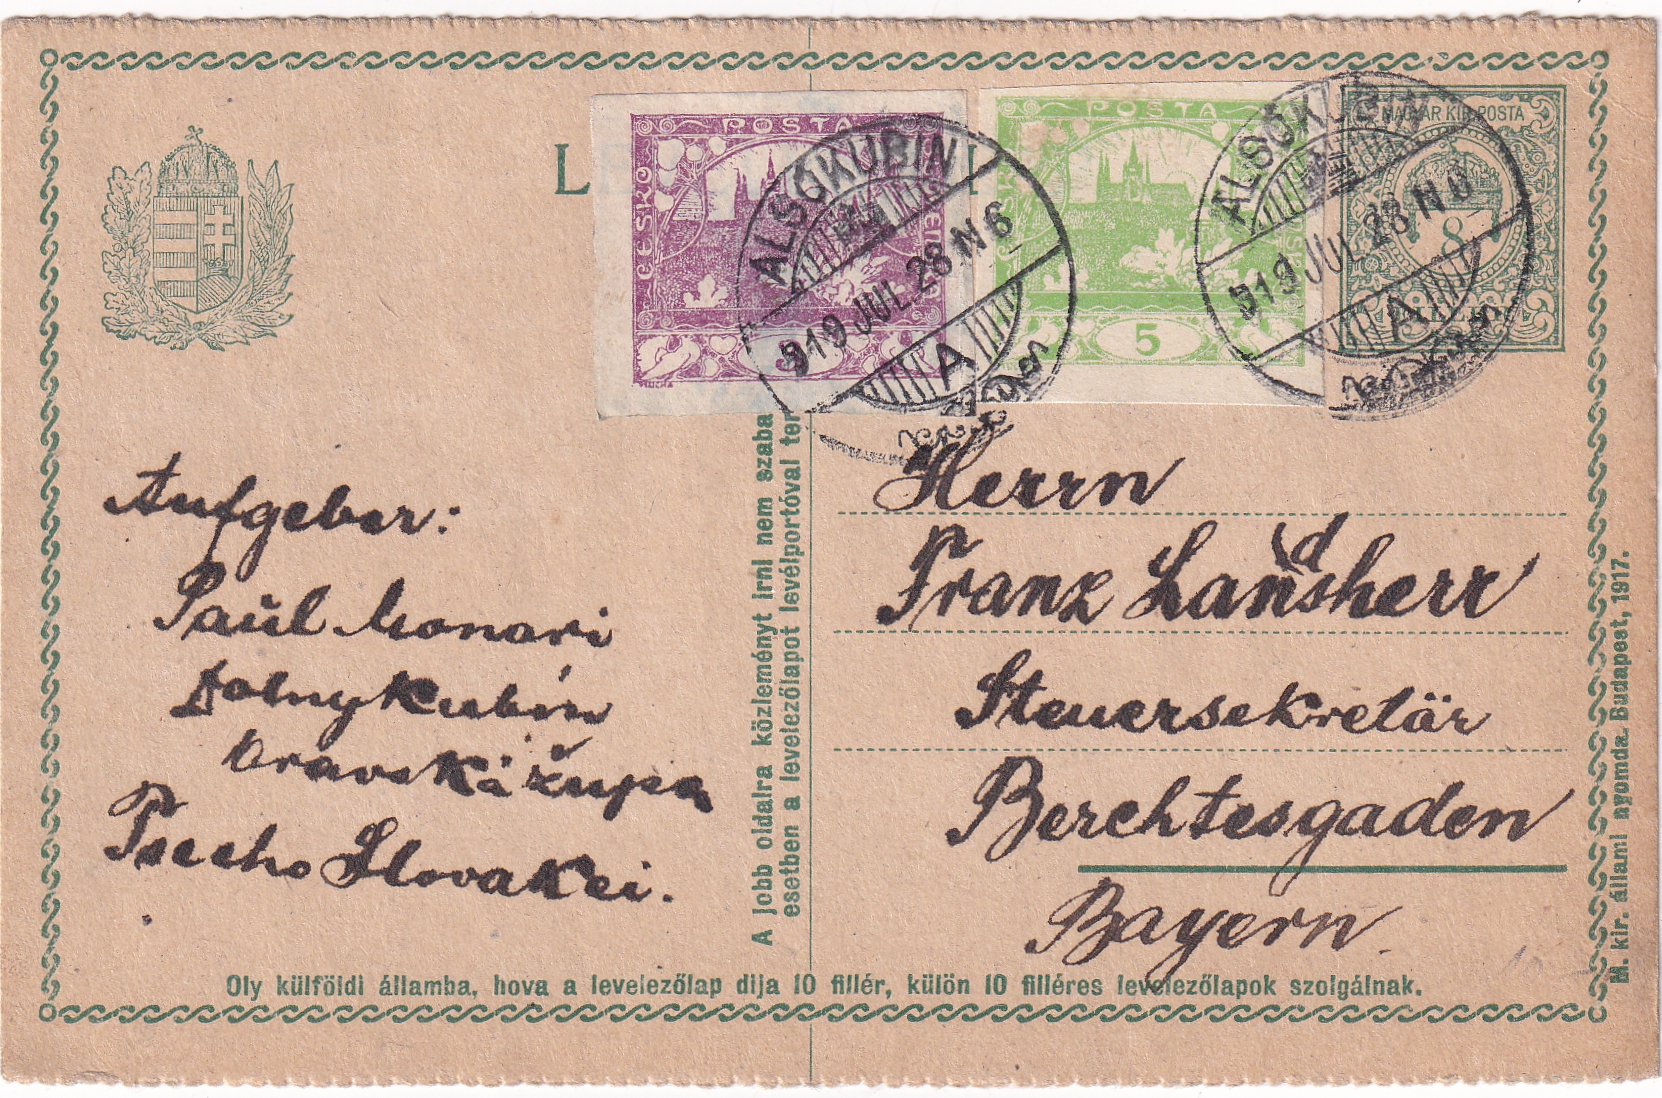 POSTA
ČESKO
MUCHA
POSTA
5
MAGYAR KIR. POSTA
8
ALSÓKUBIN
919 JUL. 28 N 6
A
ALSÓKUBIN
919 JUL. 28 N 6
A
Aufgeber:
Paŭl Monari
Dolnykubín
Oravská župa
Tsecho Slovakei.
A jobb oldalra közleményt irni nem szaba
esetben a levelezőlapot levélportóval ter
Herrn
Franz Landsherr
Steuersekretär
Berchtesgaden
Bayern.
Oly külföldi államba, hova a levelezőlap dija 10 fillér, külön 10 filléres levelezőlapok szolgálnak.
M. kir. állami nyomda. Budapest, 1917.